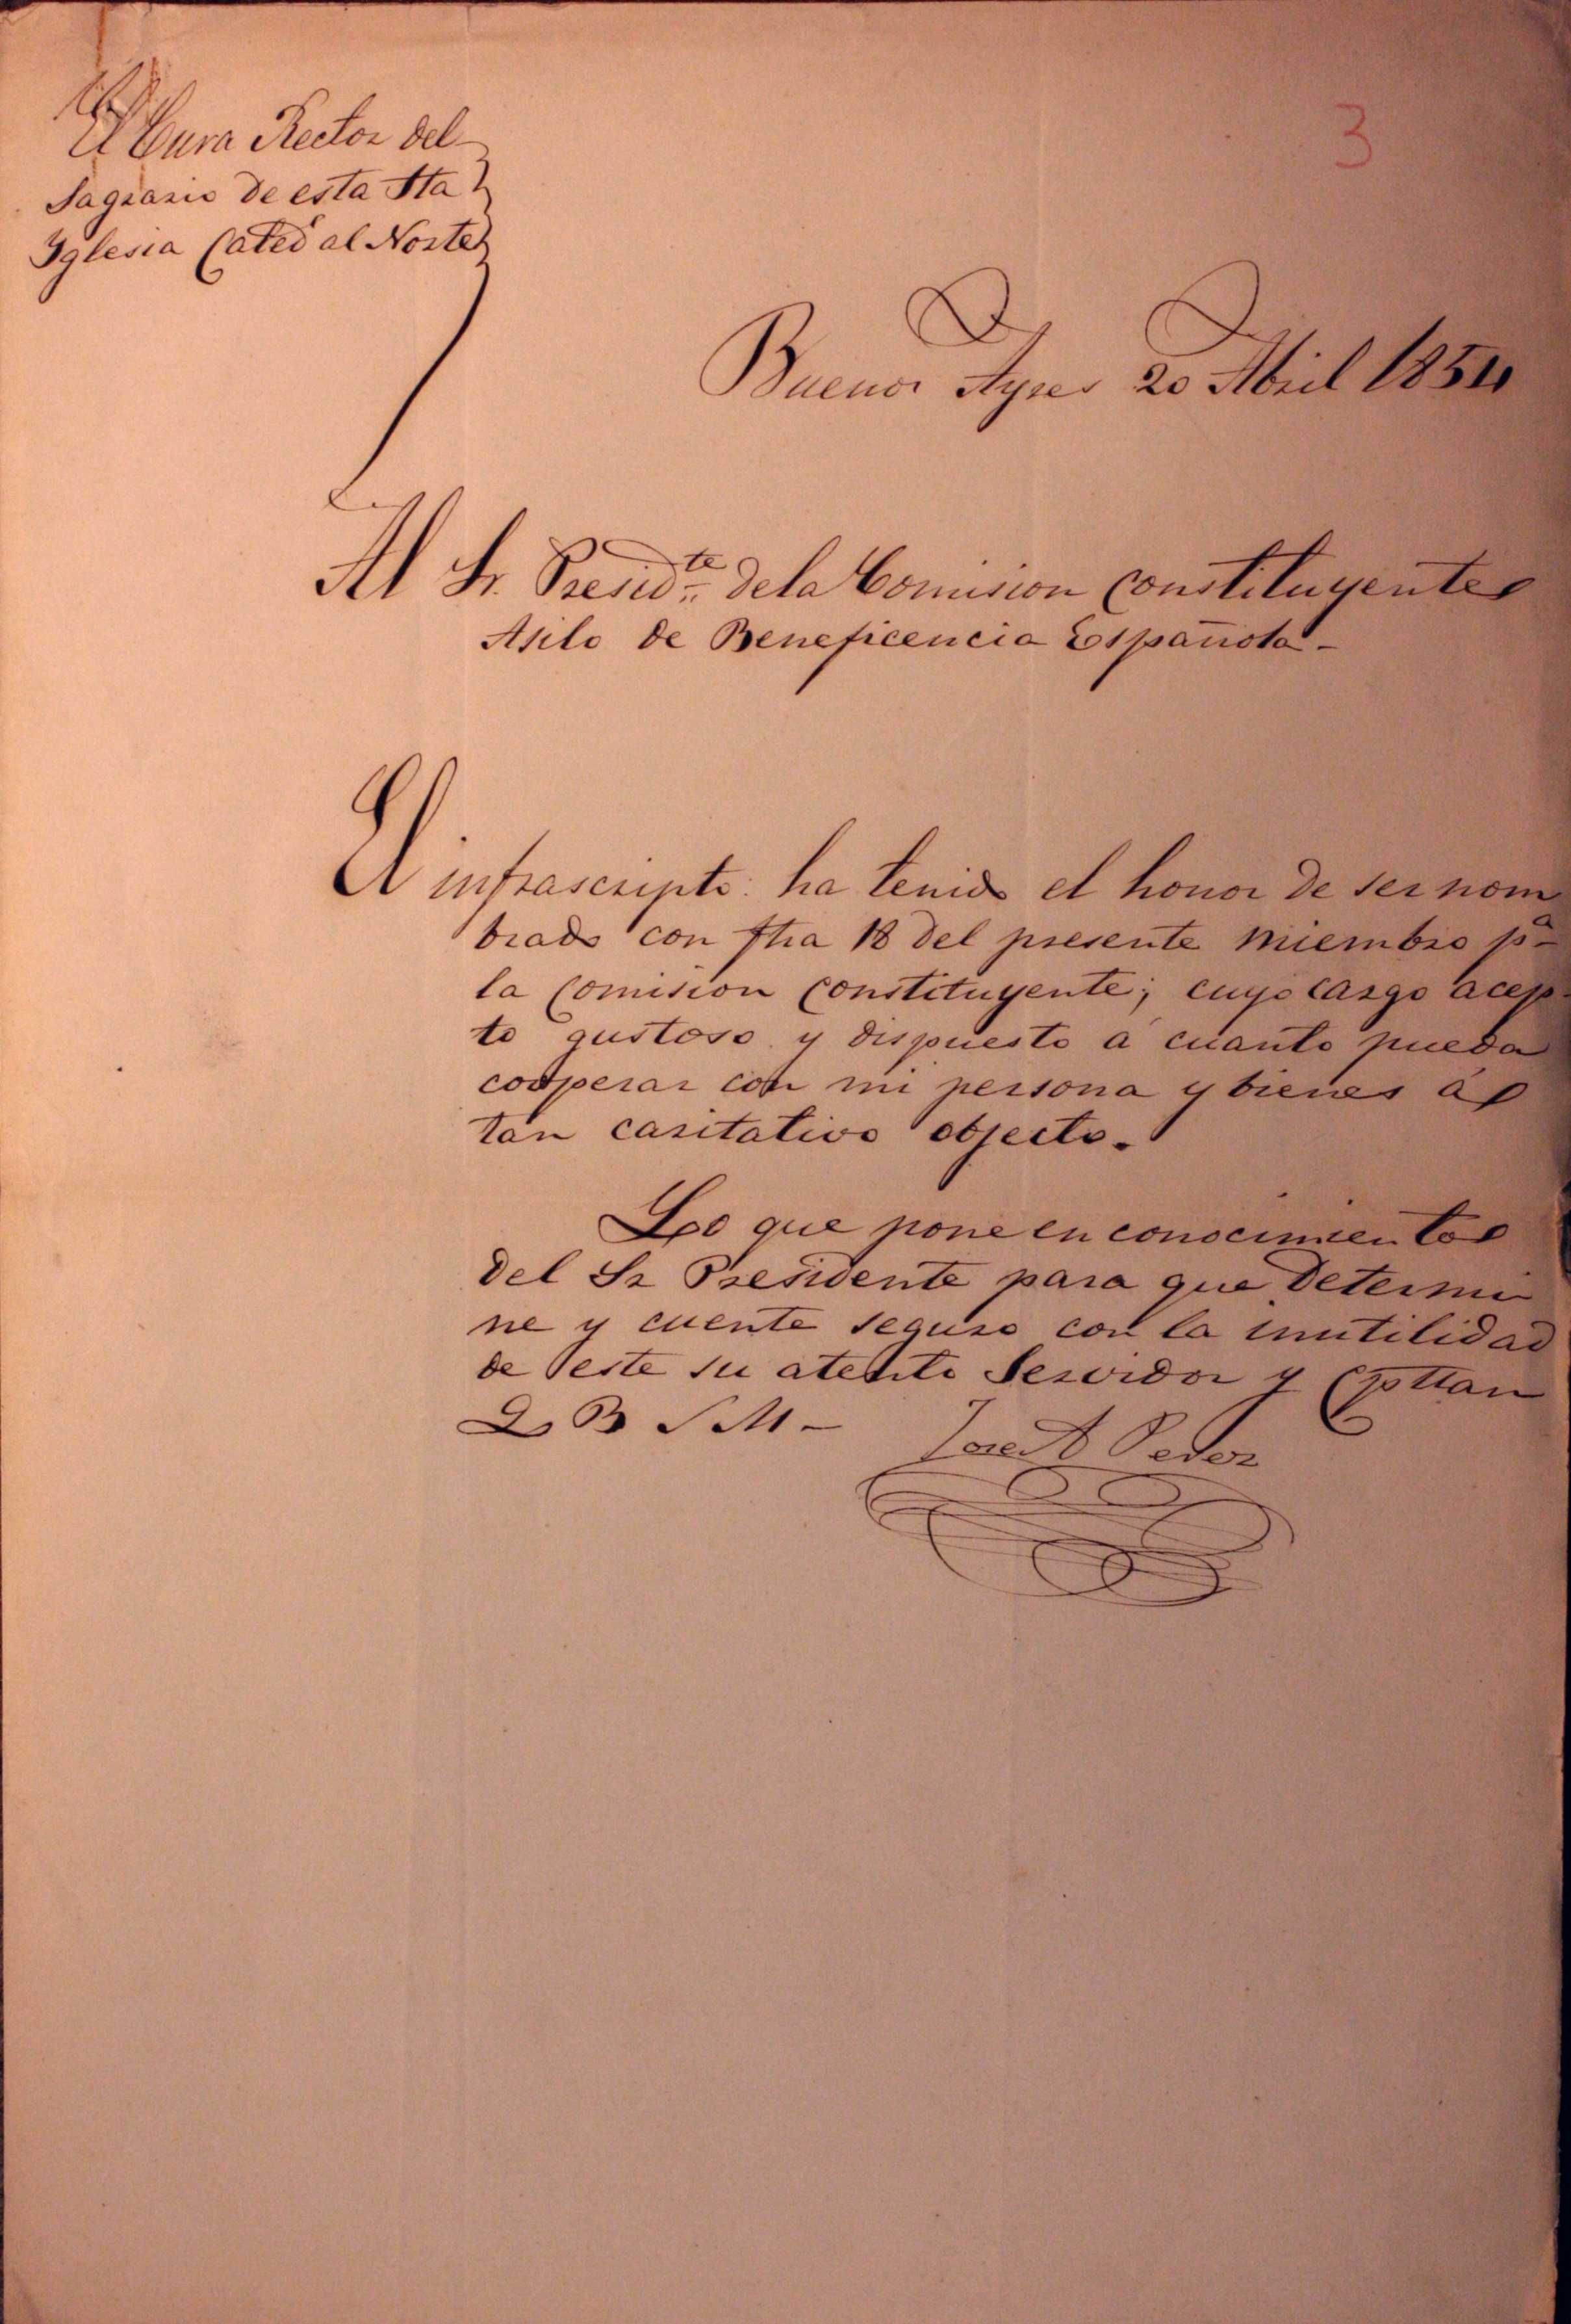 El Cura Rector del
Sagrario de esta Sta
Yglesia Cated al Norte
3
Buenos Ayres 20 Abril 1854
Al Sr. Presid.te de la Comision constituyente
Asilo de Beneficencia Española -
El infrascripto ha tenido el honor de ser nom
brado con fha 18 del presente miembro pa
la comision constituyente; cuyo cargo acep
to gustoso y dispuesto á cuanto pueda
cooperar con mi persona y bienes á
tan caritativo objecto.
Lo que pone en conocimiento
del Sr Presidente para que determi
ne y cuente seguro con la inutilidad
de este su atento Servidor y Cpllan
Q B S M -
Jose A Perez